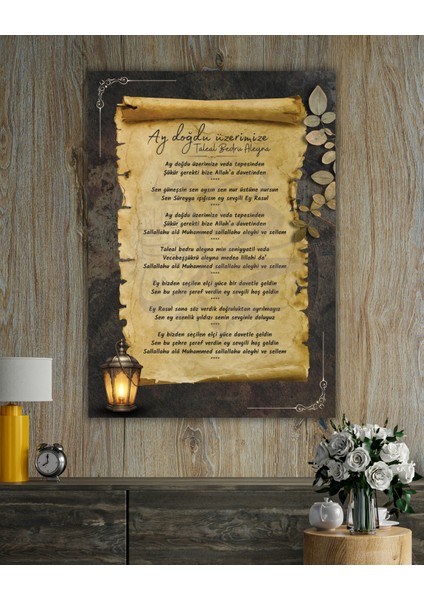 Ay doğdu üzerimize
Taleal Bedru Aleyna
Ay doğdu üzerimize veda tepesinden
Şükür gerekti bize Allah'a davetinden
****
Sen güneşsin sen aysın sen nur üstüne nursun
Sen Süreyya ışığısın ey sevgili Ey Rasul
****
Ay doğdu üzerimize veda tepesinden
Şükür gerekti bize Allah'a davetinden
Sallallahu alâ Muhammed sallallahu aleyhi ve sellem
****
Taleal bedru aleyna min seniyyatil veda
Vecebeşşükrü aleyna madea lillahi da'
Sallallahu alâ Muhammed sallallahu aleyhi ve sellem
****
Ey bizden seçilen elçi yüce bir davetle geldin
Sen bu şehre şeref verdin ey sevgili hoş geldin
****
Ey Rasul sana söz verdik doğruluktan ayrılmayız
Sen ey esenlik yıldızı senin sevginle doluyuz
****
Ey bizden seçilen elçi yüce bir davetle geldin
Sen bu şehre şeref verdin ey sevgili hoş geldin
Sallallahu alâ Muhammed sallallahu aleyhi ve sellem
****